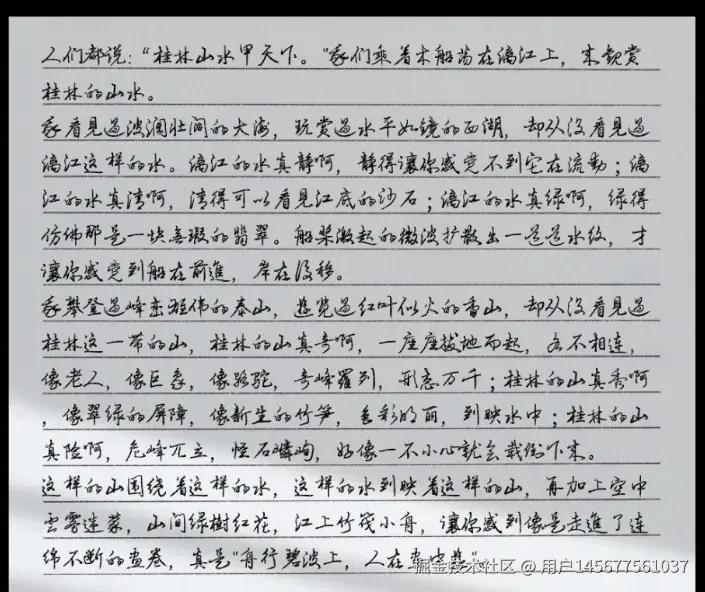 人们都说:“桂林山水甲天下。”我们乘着木船荡在漓江上,来观赏
桂林的山水。
我看見过波澜壮阔的大海,玩赏过水平如镜的西湖,却从没看見过
漓江这样的水。漓江的水真静啊,静得讓你感觉不到它在流動;漓
江的水真清啊,清得可以看見江底的沙石;漓江的水真绿啊,绿得
仿佛那是一块无瑕的翡翠。船桨激起的微波扩散出一道道水纹,才
讓你感觉到船在前進,岸在後移。
我攀登过峰峦雄伟的泰山,遊览过红叶似火的香山,却从没看見过
桂林这一带的山,桂林的山真奇啊,一座座拔地而起,各不相连,
像老人,像巨象,像骆驼,奇峰羅列,形态万千;桂林的山真秀啊
,像翠绿的屏障,像新生的竹笋,色彩明丽,倒映水中;桂林的山
真险啊,危峰兀立,怪石嶙峋,好像一不小心就会栽倒下来。
这样的山围绕着这样的水,这样的水倒映着这样的山,再加上空中
雲雾迷蒙,山间绿樹红花,江上竹筏小舟,讓你感到像是走進了连
绵不断的画卷,真是“舟行碧波上,人在画中遊”
掘金技术社区 @ 用户145677561037